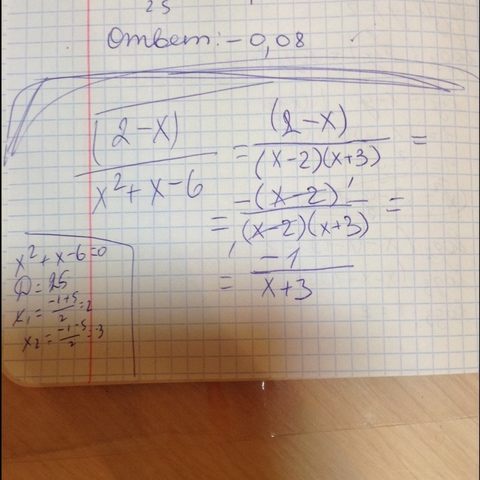 25
Ответ: -0,08
(2-x) / x²+x-6 = (2-x) / (x-2)(x+3) =
= -(x-2) / (x-2)(x+3) =
= -1 / x+3
x²+x-6=0
D=25
x₁=-1+5/2=2
x₂=-1-5/2=-3